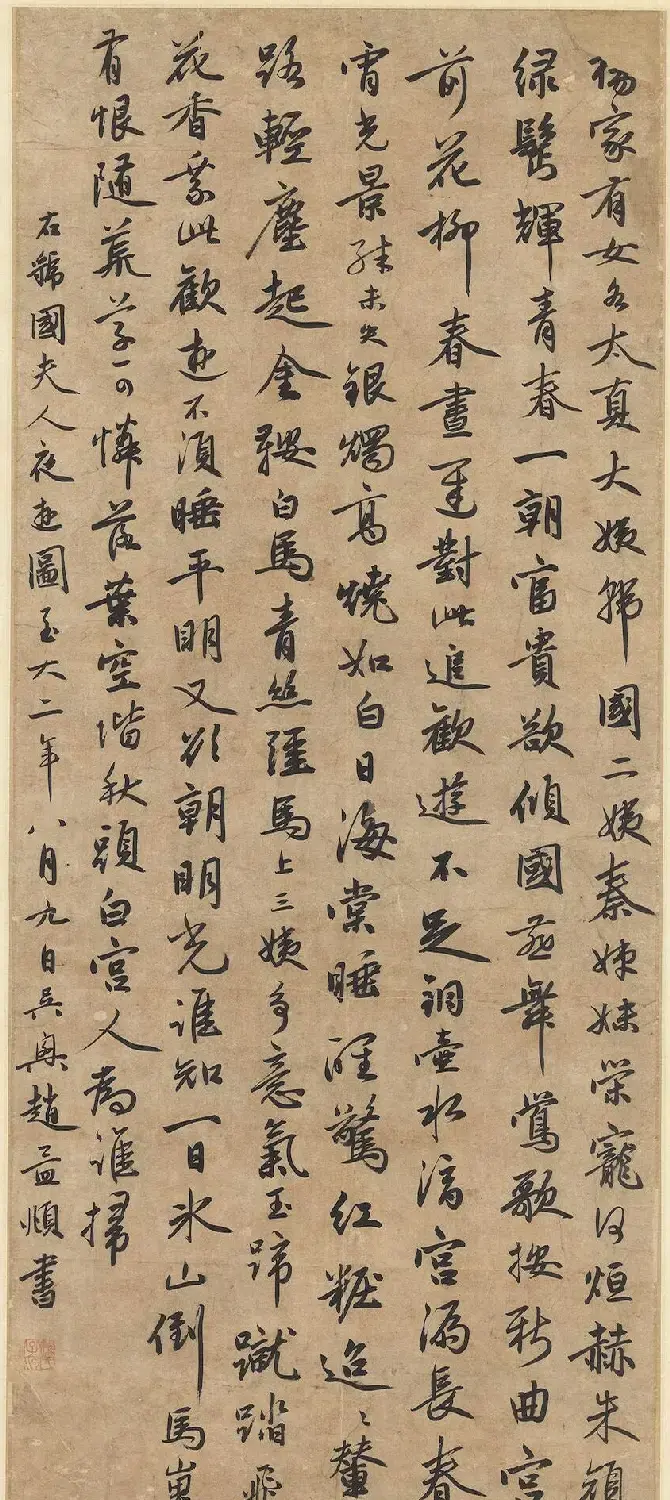 楊家有女名太真大姨虢國二姨秦姊妹榮寵何烜赫朱顏
綠鬢輝青春一朝富貴欲傾國燕舞鶯歌按新曲宮
前花柳春晝遲對此進歡遊不足銅壺水滴宮漏長春
宵光景殊未央銀燭高燒如白日海棠睡醒驚紅粧迢〻輦
路輕塵起金鞍白馬青絲韁馬上三姨多意氣玉蹄蹴踏飛
花香乘此歡遊不須睡平明又欲朝明光誰知一日冰山倒馬嵬
有恨隨荒草可憐落葉空階秋頭白宮人為誰掃
右虢國夫人夜遊圖至大二年八月九日吳興趙孟頫書